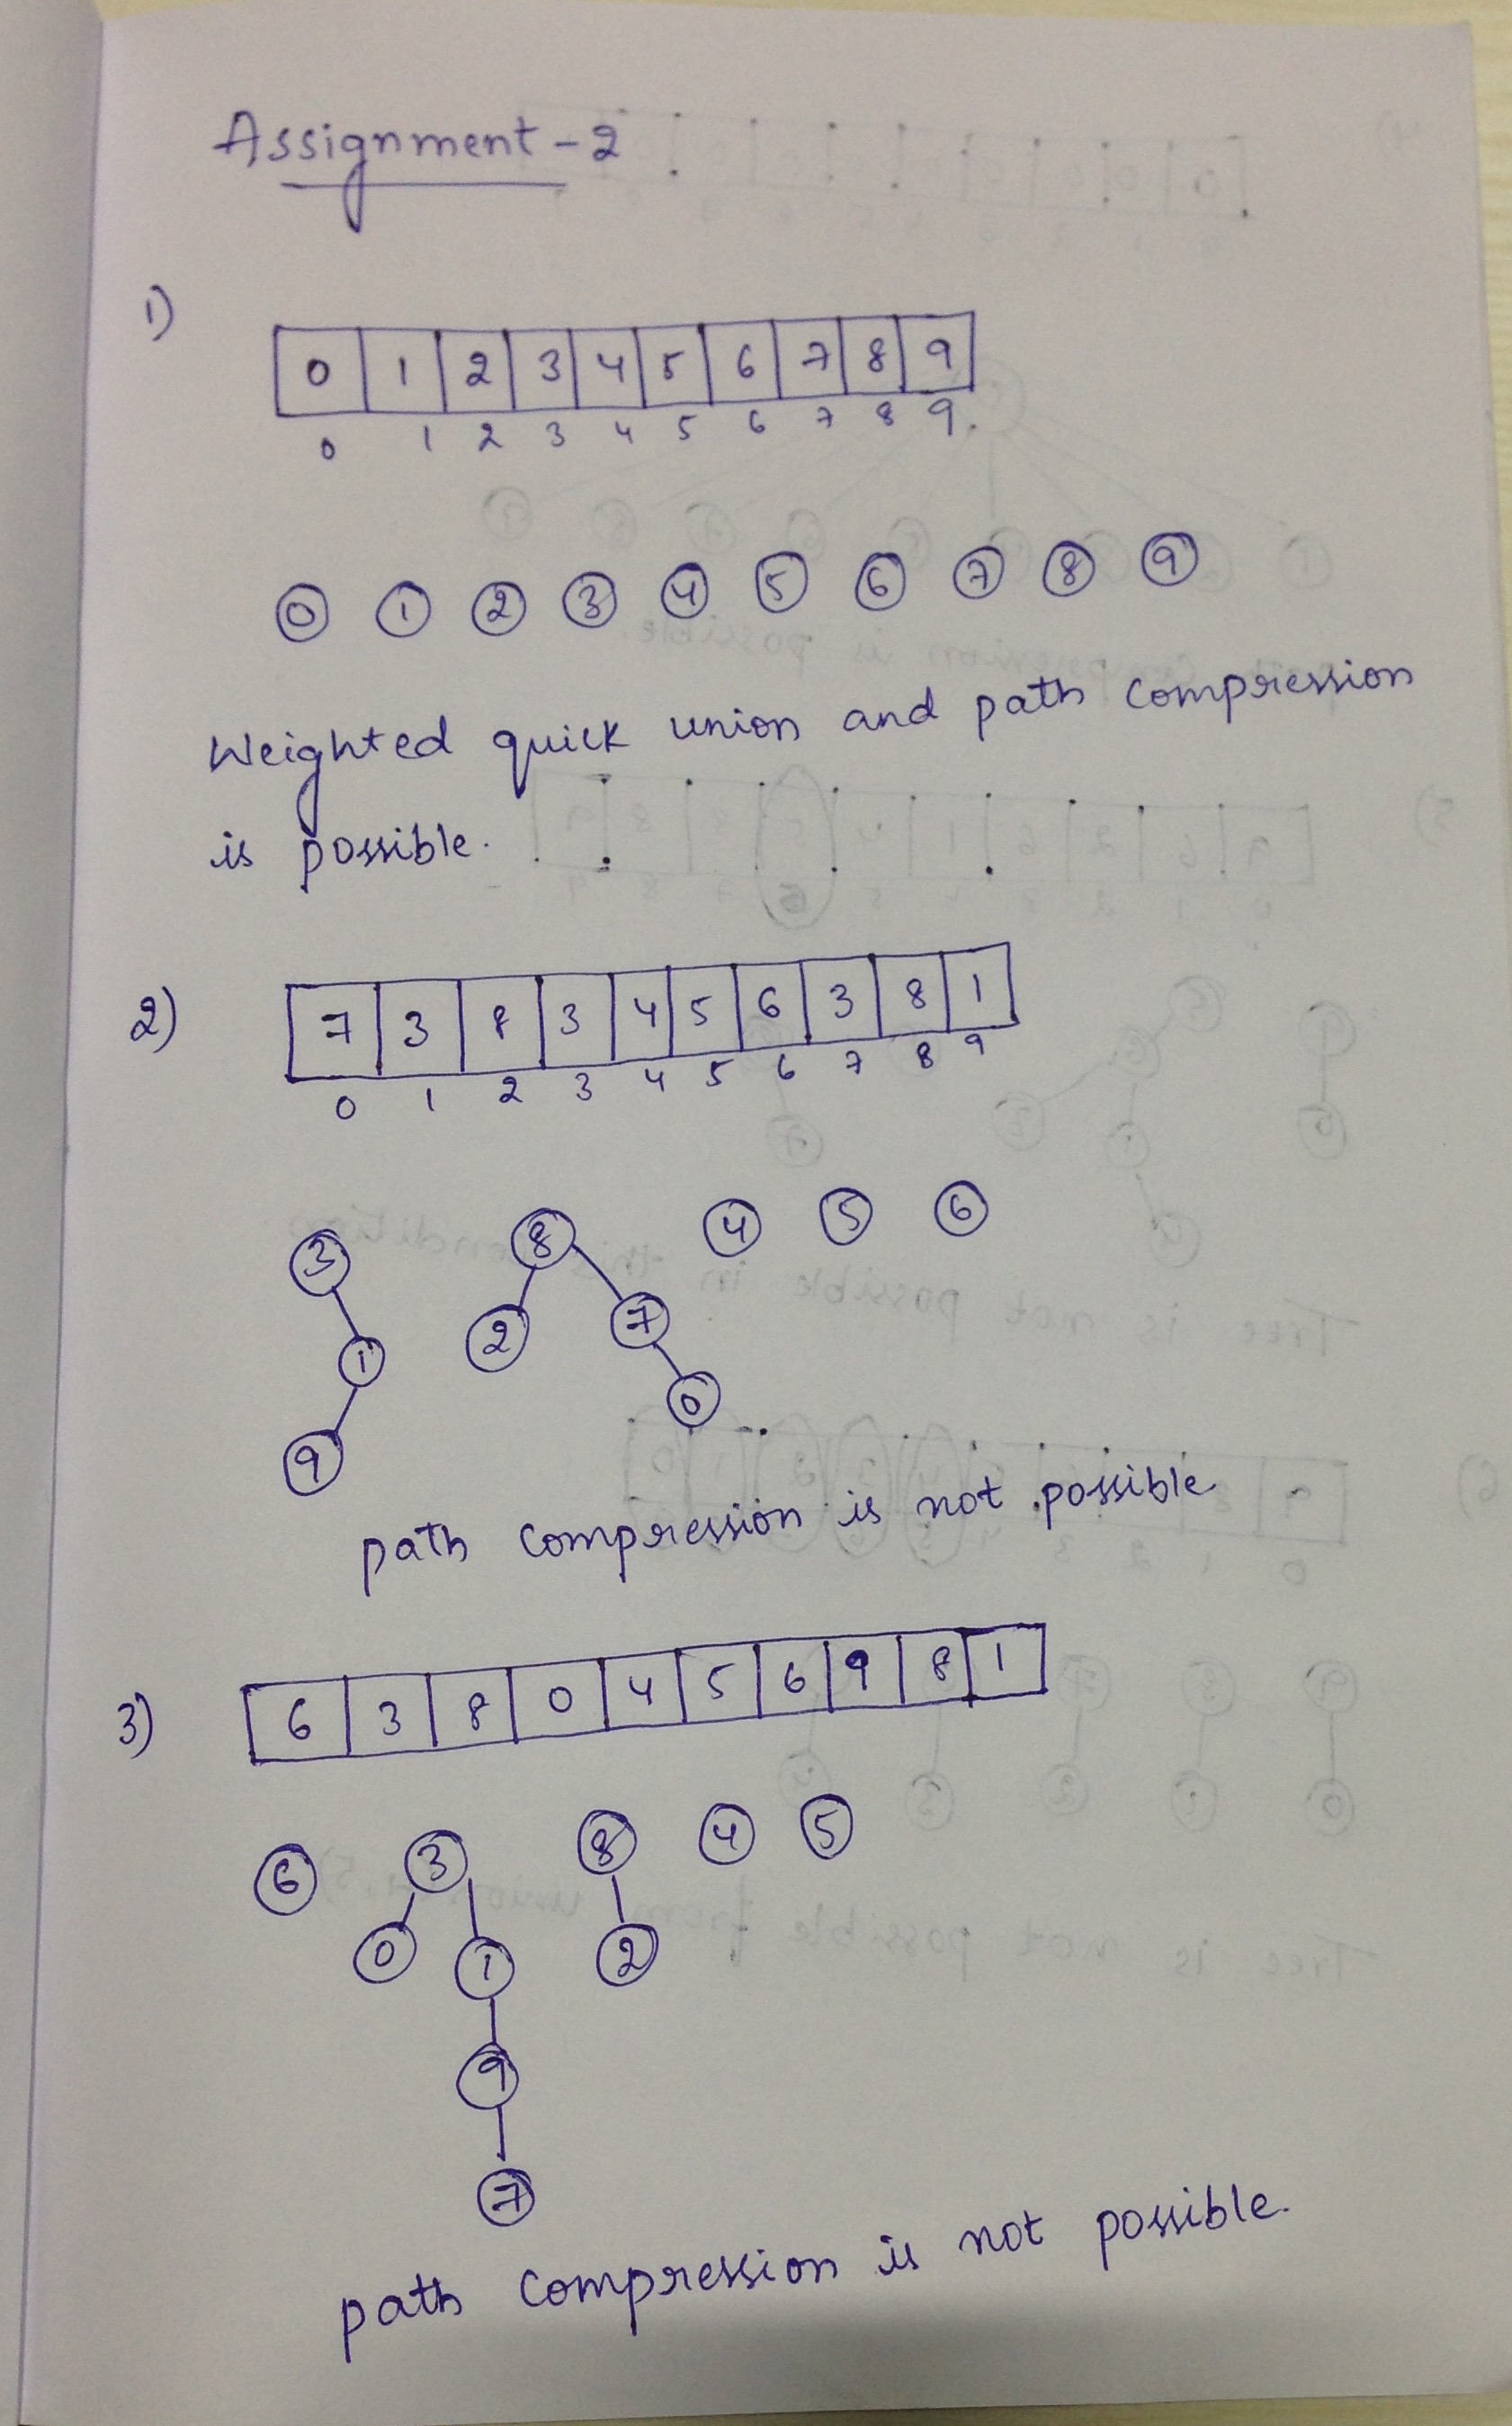 Assignment-2
1)
0 1 2 3 4 5 6 7 8 9
0 1 2 3 4 5 6 7 8 9.
0 1 2 3 4 5 6 7 8 9
Weighted quick union and path compression
is possible.
2)
7 3 8 3 4 5 6 3 8 1
0 1 2 3 4 5 6 7 8 9
3 8 4 5 6
1 2 7
9 0
path compression is not possible
3)
6 3 8 0 4 5 6 9 8 1
6 3 8 4 5
0 1 2
9
7
path compression is not possible.